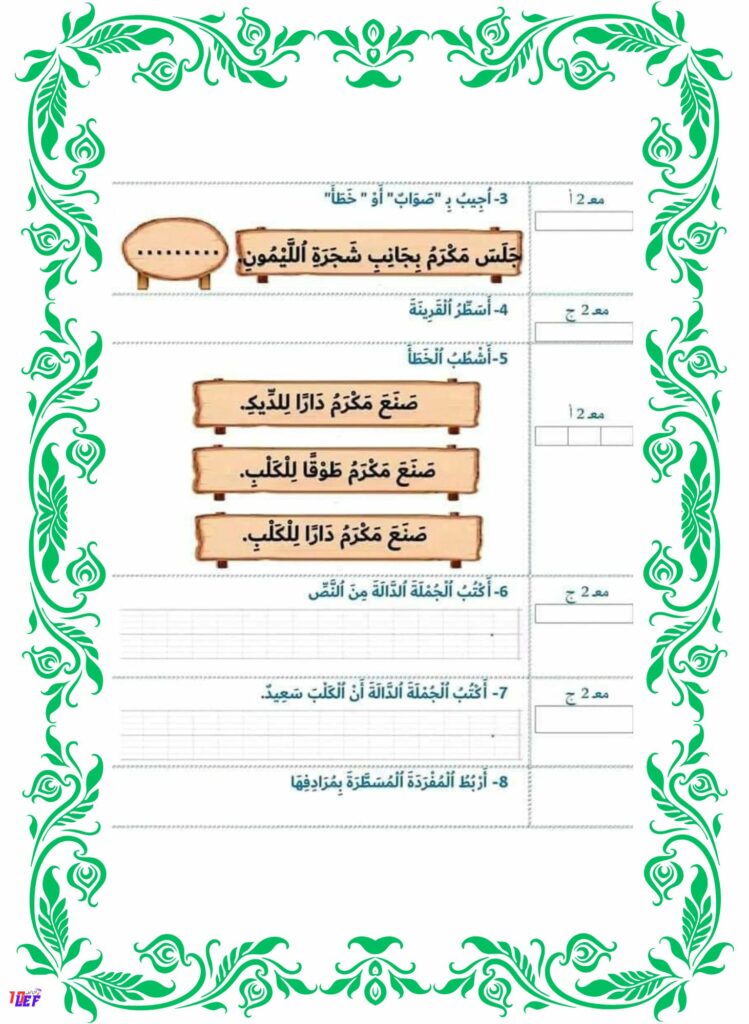 3- اُجِيبُ بِـ "صَوَابٌ" أَوْ " خَطَأَ"
معـ 2 أ
جَلَسَ مَكْرَمُ بِجَانِبِ شَجَرَةِ اُللَّيْمُونِ.
.........
4- أُسَطِّرُ اُلْقَرِينَةَ
معـ 2 ج
5- أَشْطُبُ اُلْخَطَأَ
معـ 2 أ
صَنَعَ مَكْرَمُ دَارًا لِلدِّيكِ.
صَنَعَ مَكْرَمُ طَوْقًا لِلْكَلْبِ.
صَنَعَ مَكْرَمُ دَارًا لِلْكَلْبِ.
6- أَكْتُبُ اُلْجُمْلَةَ اُلدَّالَةَ مِنَ اُلنَّصِّ
معـ 2 ج
7- أَكْتُبُ اُلْجُمْلَةَ اُلدَّالَةَ أَنْ اُلْكَلْبَ سَعِيدٌ.
معـ 2 ج
8- أَرْبُطُ اُلْمُفْرَدَةَ اُلْمُسَطَّرَةَ بِمُرَادِفِهَا